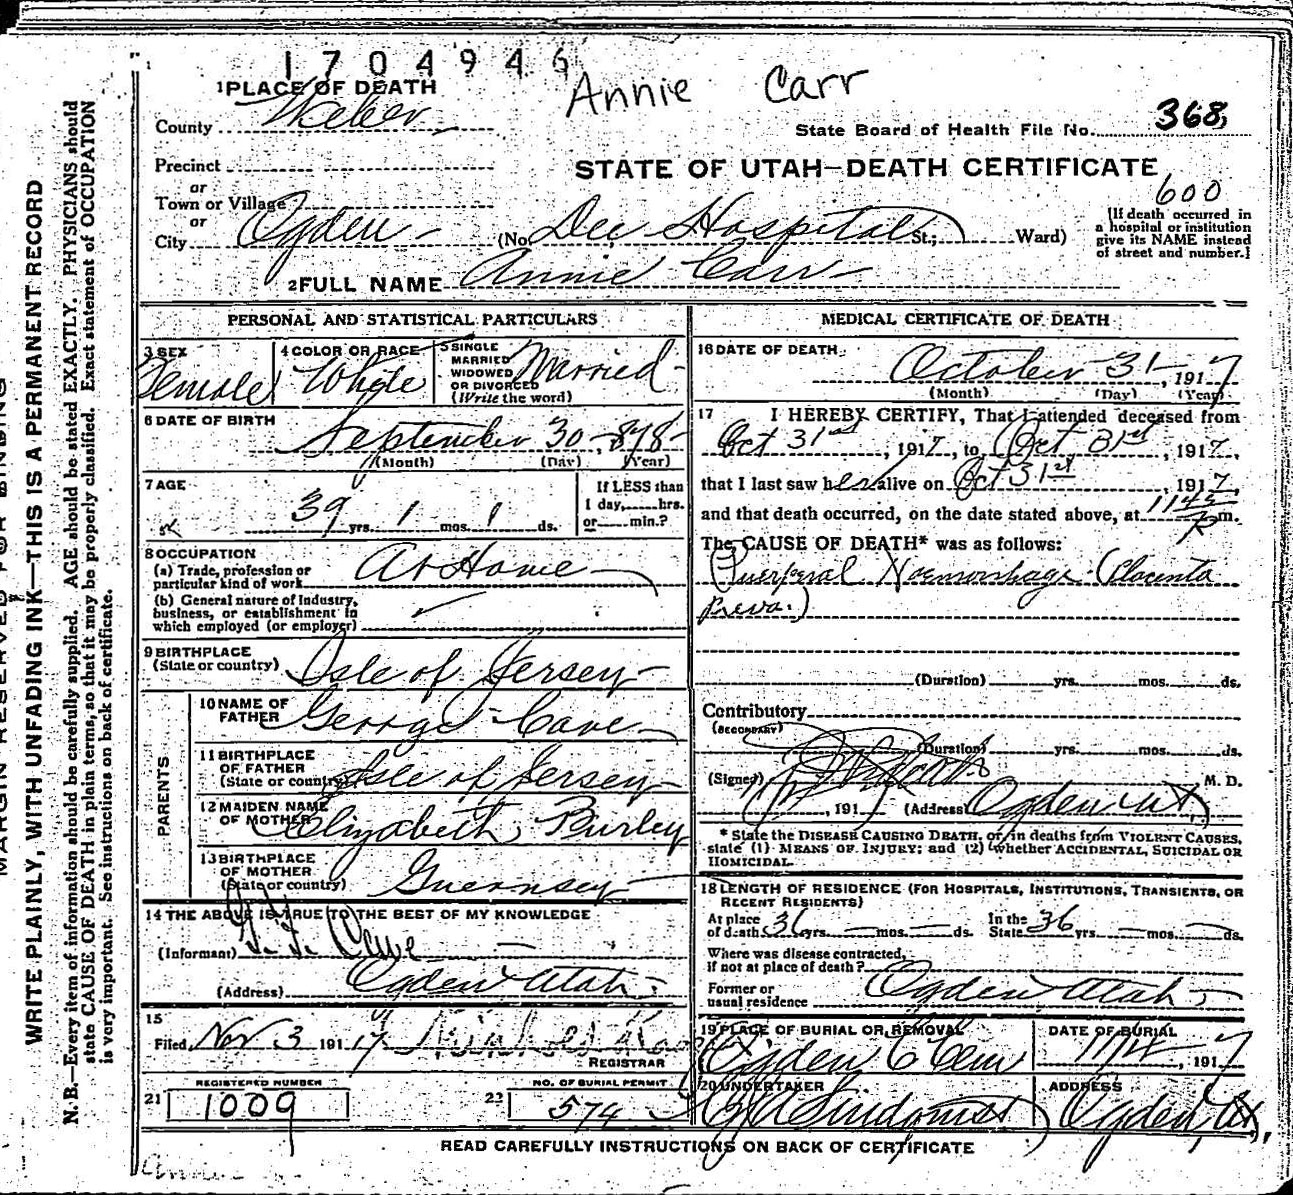 1704946
Annie Carr
1 PLACE OF DEATH
County Weber
State Board of Health File No. 368
Precinct
STATE OF UTAH—DEATH CERTIFICATE
or
600
Town or Village
or
City Ogden (No. Dee Hospital St.; Ward)
[If death occurred in
a hospital or institution
give its NAME instead
of street and number.]
2 FULL NAME Annie Carr
PERSONAL AND STATISTICAL PARTICULARS
3 SEX Female
4 COLOR OR RACE White
5 SINGLE
MARRIED
WIDOWED
OR DIVORCED
(Write the word)
Married
6 DATE OF BIRTH
September 30 - 878
(Month) (Day) (Year)
7 AGE
39 yrs. 1 mos. 1 ds.
If LESS than
1 day, hrs.
or min.?
8 OCCUPATION
(a) Trade, profession or
particular kind of work At Home
(b) General nature of Industry,
business, or establishment in
which employed (or employer)
9 BIRTHPLACE
(State or country) Isle of Jersey
PARENTS
10 NAME OF
FATHER George Cave
11 BIRTHPLACE
OF FATHER
(State or country) Isle of Jersey
12 MAIDEN NAME
OF MOTHER Elizabeth Burley
13 BIRTHPLACE
OF MOTHER
(State or country) Guernsey
14 THE ABOVE IS TRUE TO THE BEST OF MY KNOWLEDGE
(Informant) Cave
(Address) Ogden Utah
15
Filed Nov 3 1917
REGISTRAR
REGISTERED NUMBER
21 1009
NO. OF BURIAL PERMIT
22 574
MEDICAL CERTIFICATE OF DEATH
16 DATE OF DEATH
October 31, 1917
(Month) (Day) (Year)
17 I HEREBY CERTIFY, That I attended deceased from
Oct 31st, 1917, to Oct 31st, 1917,
that I last saw her alive on Oct 31st, 1917,
and that death occurred, on the date stated above, at 1145 P m.
The CAUSE OF DEATH* was as follows:
Puerperal Haemorrhage (Placenta
Previa.)
(Duration) yrs. mos. ds.
Contributory
(SECONDARY)
(Duration) yrs. mos. ds.
(Signed) M. D.
, 191 (Address) Ogden Ut
* State the DISEASE CAUSING DEATH, or, in deaths from VIOLENT CAUSES,
state (1) MEANS OF INJURY; and (2) whether ACCIDENTAL, SUICIDAL OR
HOMICIDAL.
18 LENGTH OF RESIDENCE (FOR HOSPITALS, INSTITUTIONS, TRANSIENTS, OR
RECENT RESIDENTS)
At place
of death 36 yrs. mos. ds.
In the
State 36 yrs. mos. ds.
Where was disease contracted,
if not at place of death?
Former or
usual residence Ogden Utah
19 PLACE OF BURIAL OR REMOVAL
Ogden C Cem
DATE OF BURIAL
11/4, 1917
20 UNDERTAKER
ADDRESS
Ogden, Ut,
READ CAREFULLY INSTRUCTIONS ON BACK OF CERTIFICATE
MARGIN RESERVED FOR BINDING
WRITE PLAINLY, WITH UNFADING INK—THIS IS A PERMANENT RECORD
N. B.—Every item of information should be carefully supplied. AGE should be stated EXACTLY. PHYSICIANS should
state CAUSE OF DEATH in plain terms, so that it may be properly classified. Exact statement of OCCUPATION
is very important. See instructions on back of certificate.